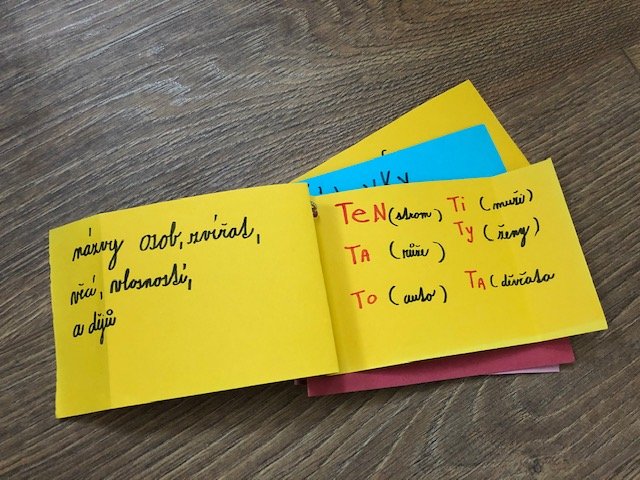 názvy osob, zvířat,
věcí, vlosností,
a dějů
TEN (strom) TI (muži)
TY (ženy)
TA (růže)
TO (auto) TA (děvčata